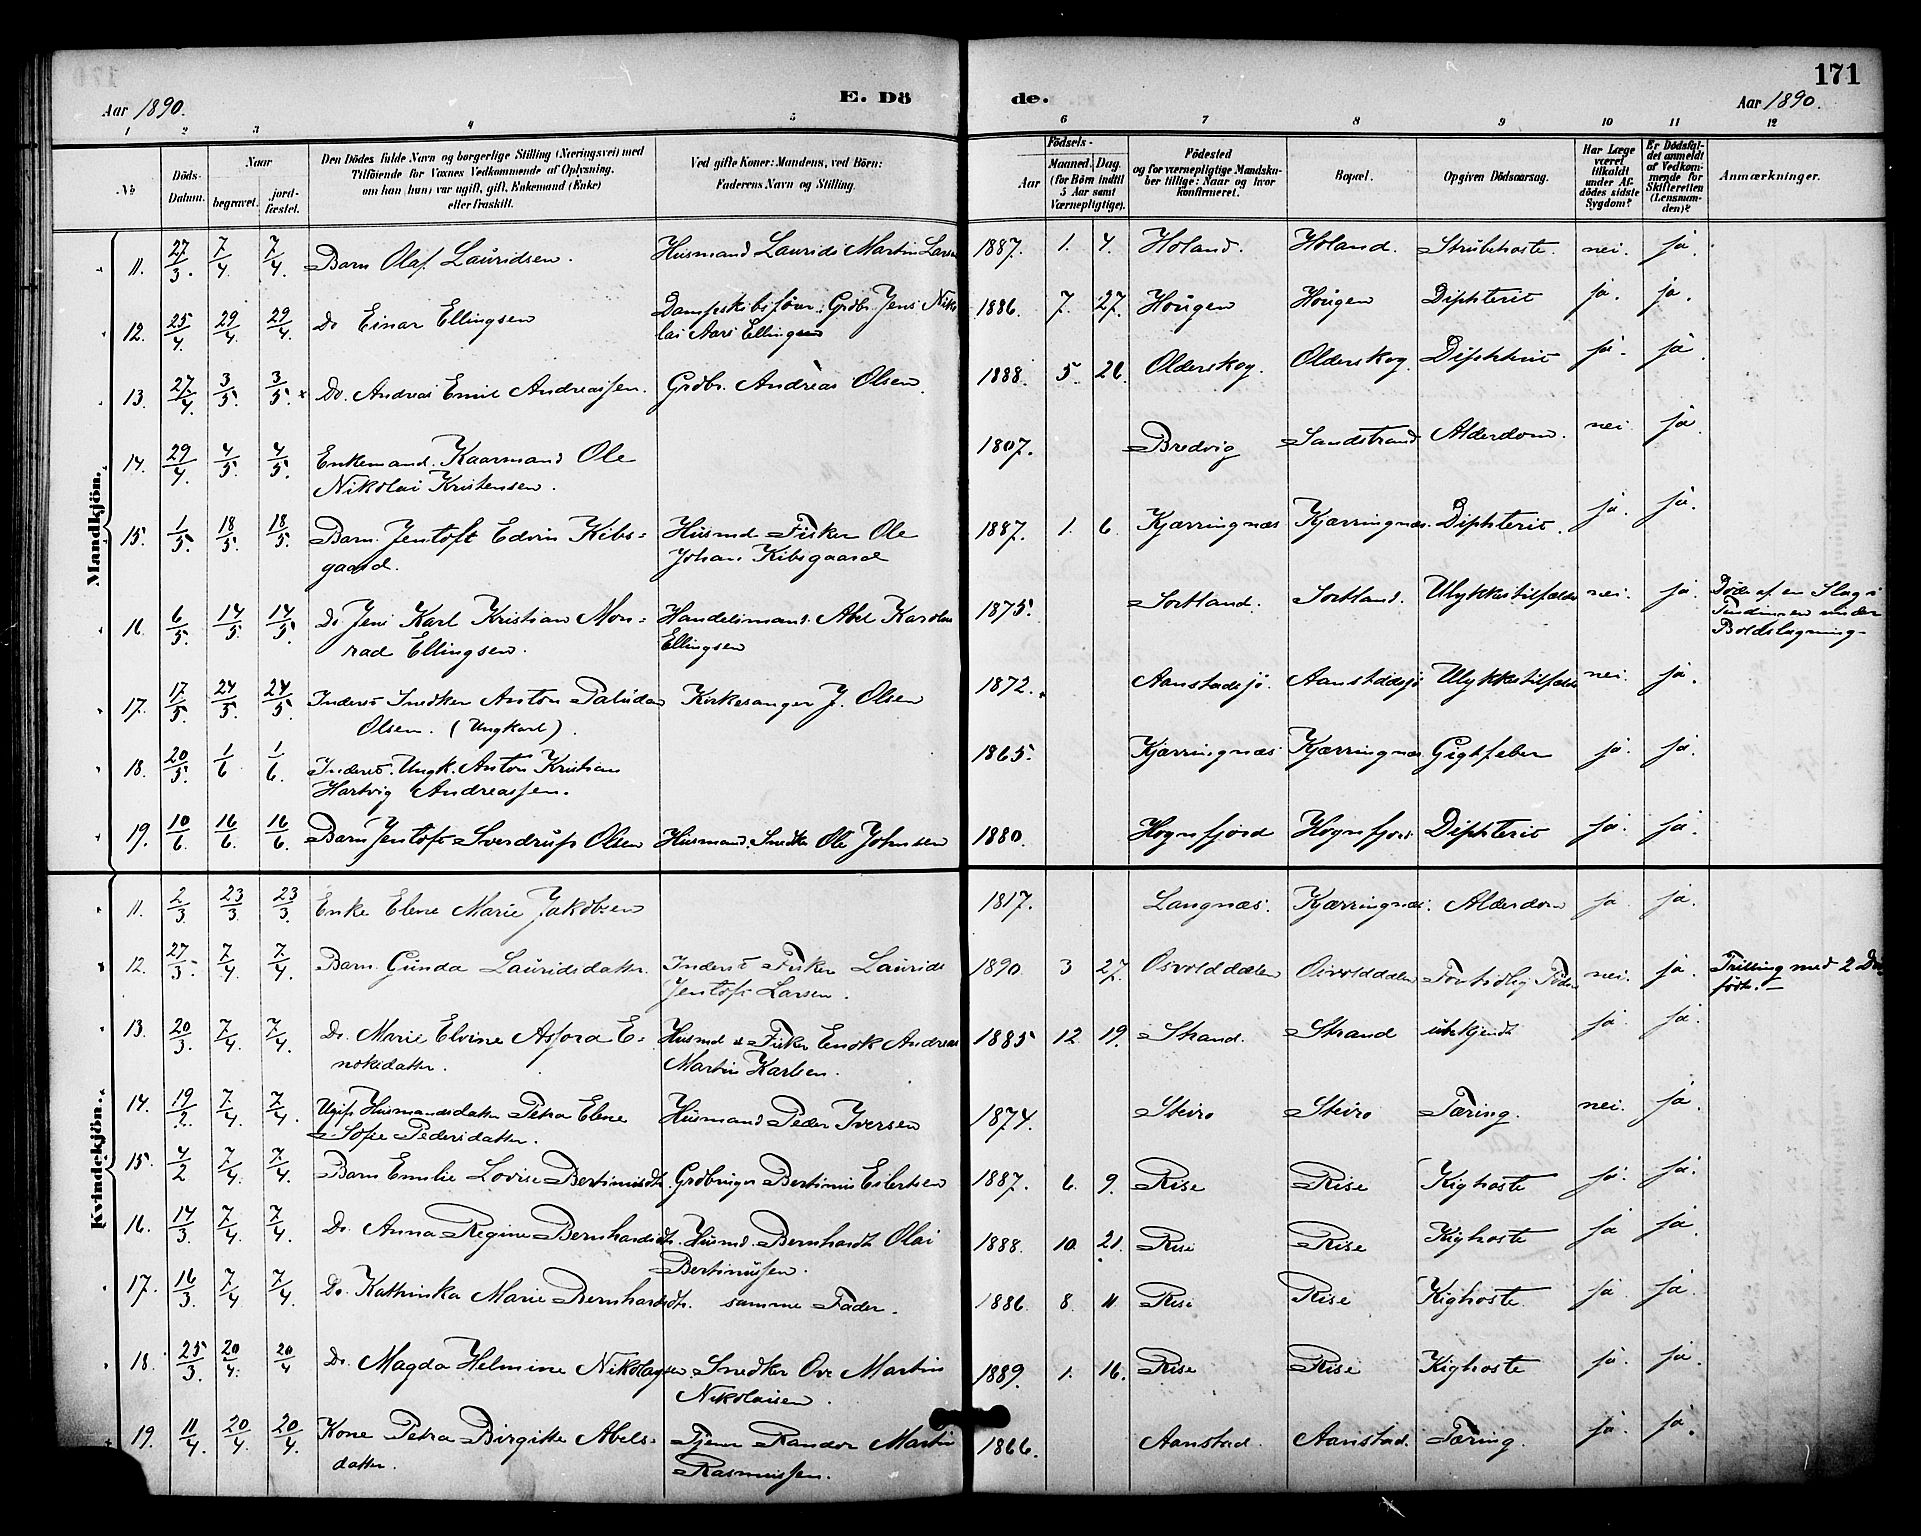 171
Aar 1890.
E. Dö
de.
Aar 1890.
1 2 3 4 5 6 7 8 9 10 11 12
No
Döds-Datum.
Naar
begravet.
jordfæstet.
Den Dödes fulde Navn og borgerlige Stilling (Næringsvei) med
Tilföiende for Voxnes Vedkommende af Oplysning,
om han (hun) var ugift, gift, Enkemand (Enke)
eller fraskilt.
Ved gifte Koner: Mandens, ved Börn:
Faderens Navn og Stilling.
Födsels-
Aar
Maaned. Dag.
(for Börn indtil
5 Aar samt
Værnepligtige).
Födested
og for værnepligtige Mandskaber tillige: Naar og hvor
konfirmeret.
Bopæl.
Opgiven Dödsaarsag.
Har Læge
været
tilkaldt
under Afdödes sidste
Sygdom?
Er Dödsfaldet anmeldt
af Vedkommende for
Skifteretten
(Lensmanden)?
Anmærkninger.
Mandkjön.
11. 27/3. 7/4 7/4. Barn Olaf Lauridsen. Husmand Laurids Martin Larsen 1887. 1. 4. Holand. Holand. Strubehoste nei. ja.
12. 25/4. 29/4 29/4 Do Einar Ellingsen Dampskibsfører, Grdbr. Jens Niko
lai Aars Ellingsen 1886. 7. 27. Hougen Hougen Diphterit ja. ja.
13. 27/4 3/5. 3/5. Do. Andreas Emil Andreassen. Grdbr. Andreas Olsen 1888. 5. 26. Olderskog. Olderskog. Diphterit ja. ja
14. 29/4. 4/5. 4/5. Enkemand. Kaarmand Ole
Nikolai Kristensen. 1807. Bredvig Sandstrand Alderdom. nei. ja
15. 1/5. 18/5. 18/5. Barn. Jentoft Edvin Kibs=
gaard. Husmd Fisker Ole
Johan Kibsgaard 1887. 1. 6. Kjærringnæs Kjærringnæs. Diphterit. ja. ja.
16. 6/5. 14/5. 14/5. Do Jens Karl Kristian Mon=
rad Ellingsen. Handelsmand. Abel Karolus
Ellingsen 1875. Sortland. Sortland. Ulykkestilfælde nei. ja. Døde af en Slag i
Tindingen under
Boldslagning-
17. 17/5. 24/5. 24/5. Inderst Snedker Anton Paludan
Olsen. (Ungkarl). Kirkesanger J. Olsen 1872. Aanstadsjø. Aanstadsjø Ulykkestilfælde nei. ja.
18. 20/5. 1/6 1/6. Inderst. Ungk. Anton Kristian
Hartvig Andreassen. 1865. Kjærringnæs Kjærringnæs Gigtfeber ja. ja.
19. 10/6. 16/6. 16/6. Barn Jentoft Sverdrup Olsen Husmand. Snedker Ole Johnsen 1880. Hognfjord Hognfjord Diphterit ja. ja.
Kvindekjön.
11. 2/3. 23/3. 23/3. Enke Elene Marie Jakobsen 1817. Langnæs. Kjærringnæs. Alderdom ja. ja.
12. 27/3. 7/4. 7/4. Barn. Gunda Lauridsdatter. Inderst Fisker Laurids
Jentoft Larsen. 1890. 3 27. Osvolddalen Osvolddalen Fortidlig nei. ja. Trilling med 2
13. 20/3. 7/4. 7/4. Do. Marie Elvine E=
noksdatter. Husmd & Fisker Enok Andreas
Martin Karlsen. 1885 12. 19. Strand. Strand ubekjendt ja. ja.
14. 19/2. 7/4. 7/4. Ugift Husmandsdatter Petra Elene
Sofie Pedersdatter. Husmand Peder Iversen 1874. Steiro Steiro Tæring. nei. ja.
15. 4/2 7/4. 7/4. Barn Emilie Lovise Bertinusdtr. Grdbruger Bertinus Eilertsen 1887. 6. 9. Rise Rise Kighoste ja. ja.
16. 14/3. 7/4. 7/4. Do. Anna Regine Bernhardsdtr. Husmd. Bernhardt Olai
Bertinussen. 1888. 10. 21. Rise Rise Kighoste ja ja.
17. 16/3. 7/4 7/4. Do. Kathinka Marie Bernhardsdtr. samme Fader. 1886 8. 11. Rise Rise Kighoste. ja. ja
18. 25/3. 20/4. 20/4 Do. Magda Helmine Nikolaysen. Snedker Ove Martin
Nikolaisen. 1889. 1. 16. Rise Rise Kighoste ja. ja.
19. 11/4. 20/4. 20/4. Kone Petra Birgitte Abels=
datter. Tjener Randor Martin
Rasmussen. 1866. Aanstad. Aanstad. Tæring. ja. ja.